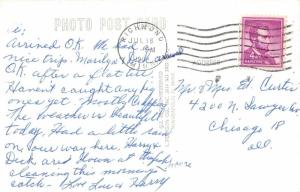 PHOTO POST CARD
Hi:
Arrived O.K. We had a
nice trip. Marilyn & Dick arrived
O.K. after a flat tire.
Haven't caught any big
ones yet. Mostly
The weather is beautiful
today. Had a little rain
on our way here. Harry &
Dick are down at the
cleaning this morning's
catch - Love Lou & Harry
RICHMOND
JUL 18
AM
Mr & Mrs Ed Curtis
4200 N. Sawyer Ave
Chicago 18
Ill.